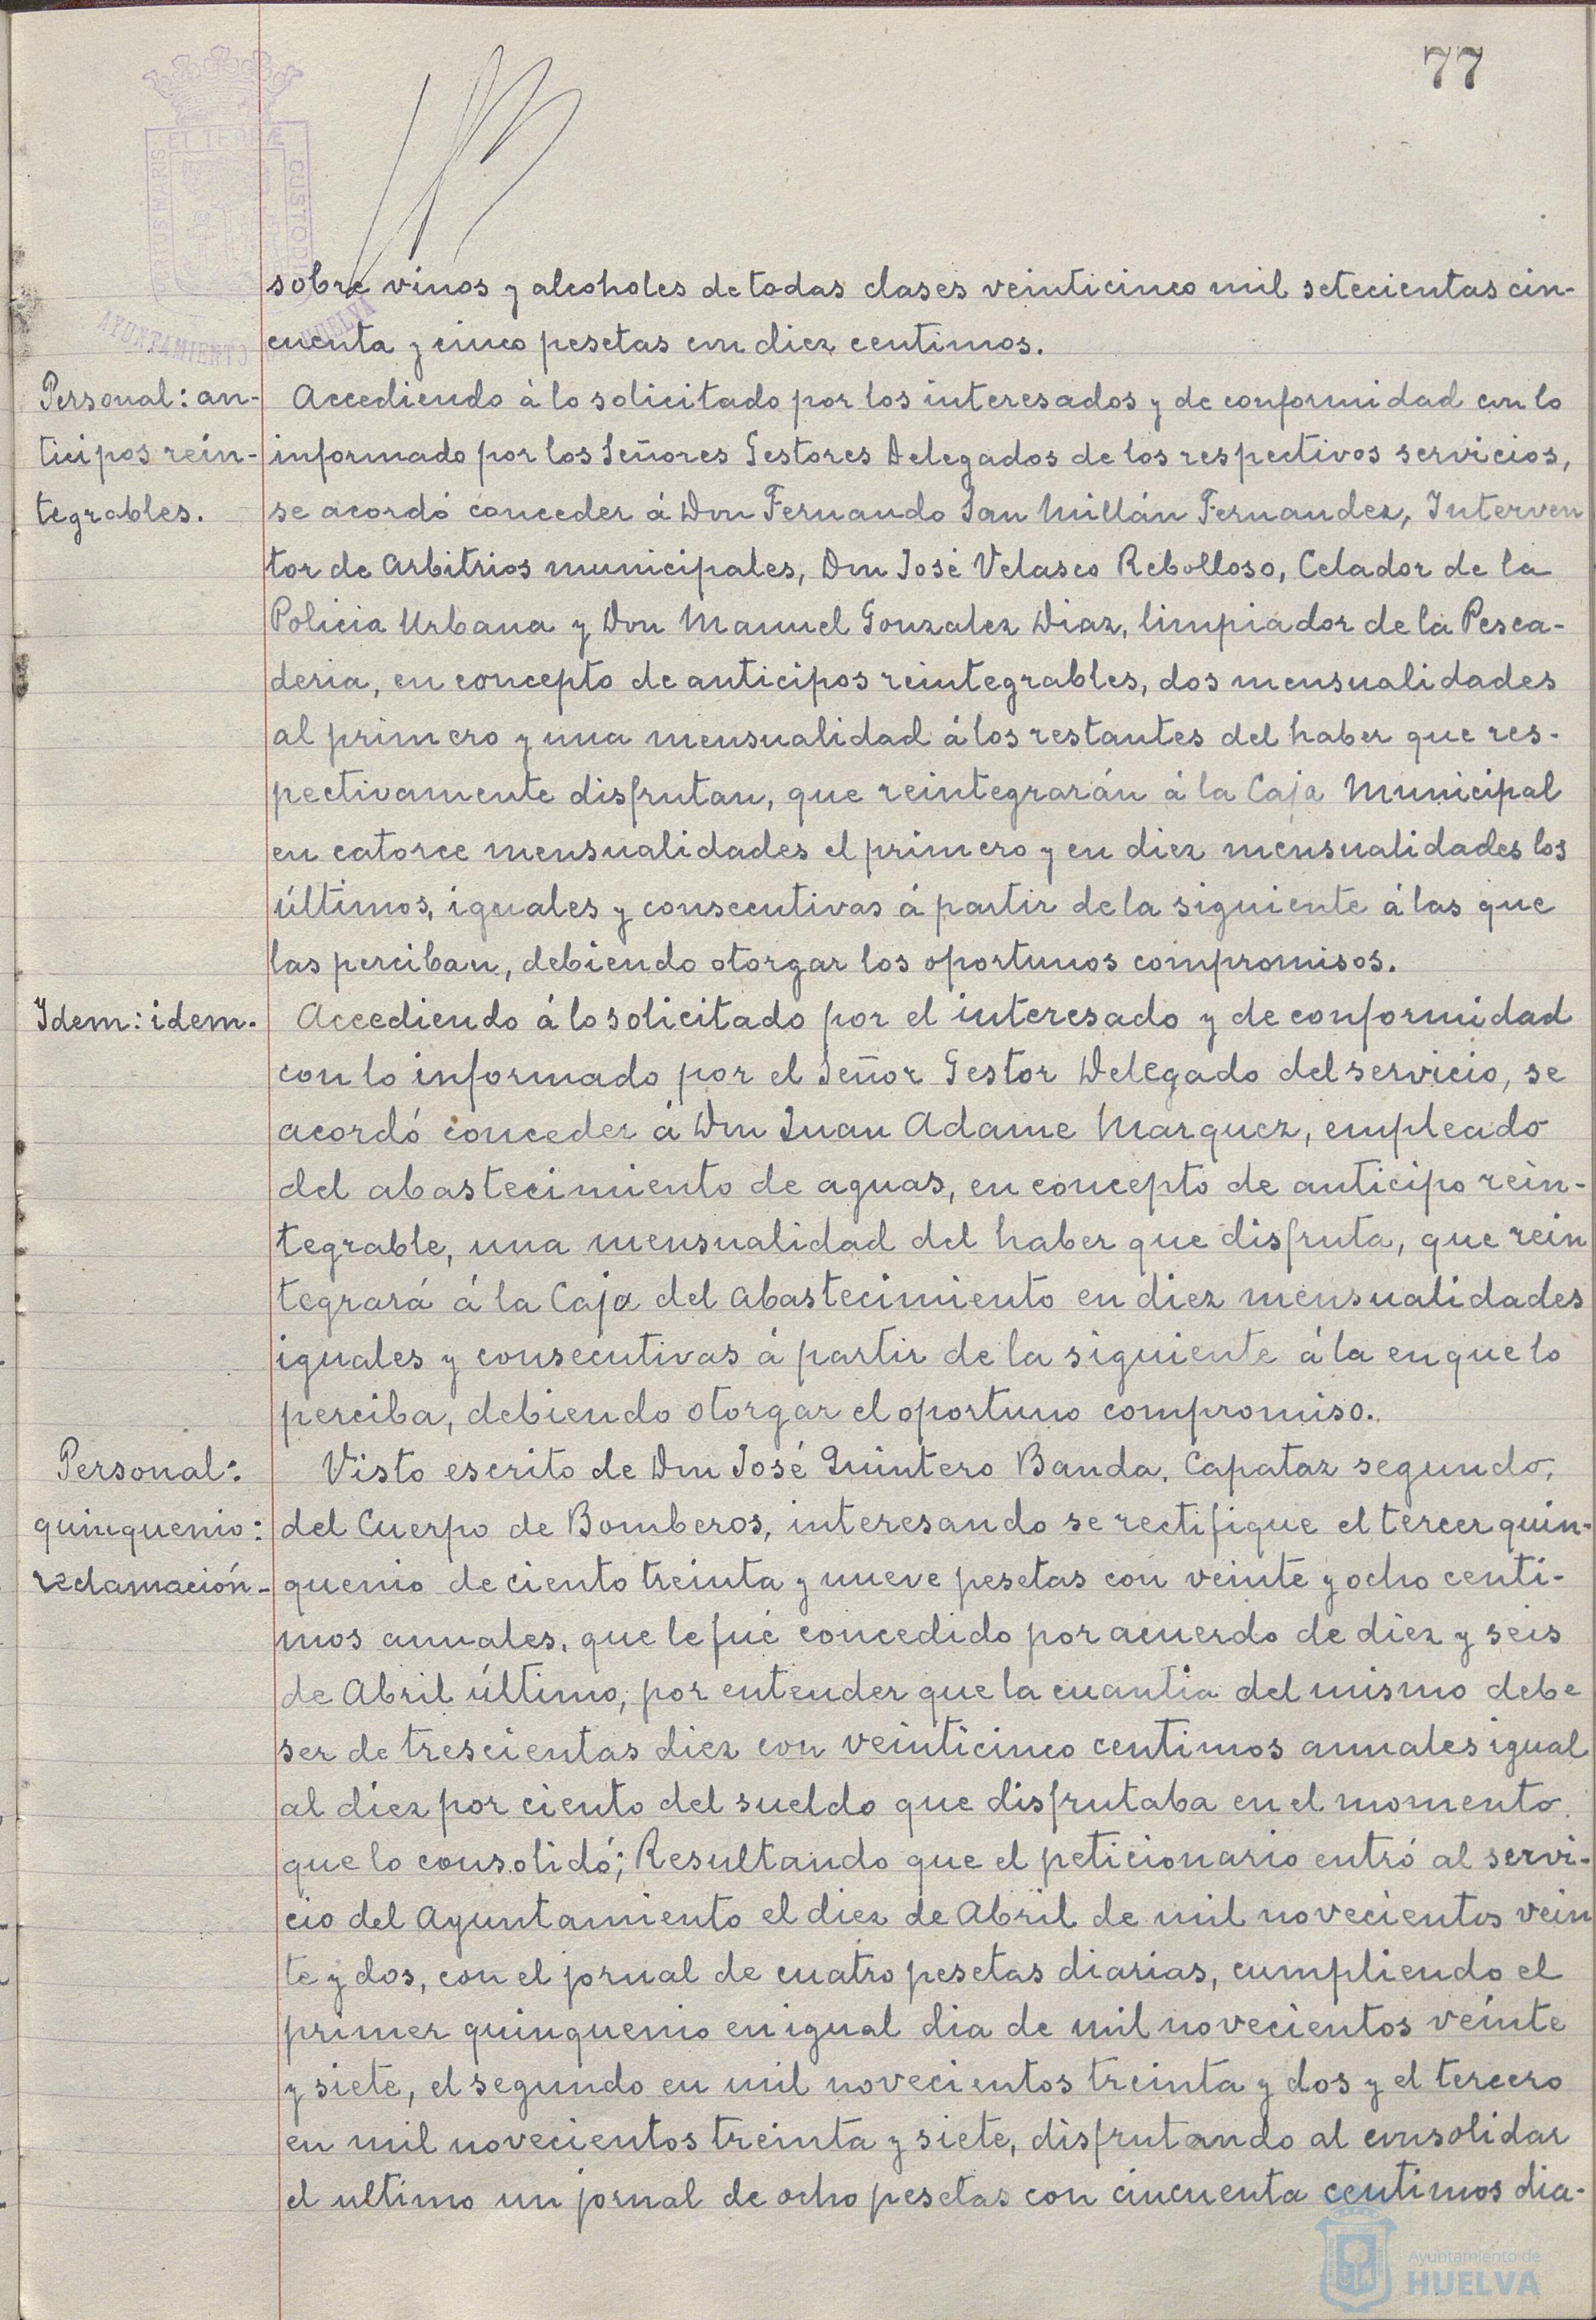 77
sobre vinos y alcoholes de todas clases veinticinco mil setecientas cin-
cuenta y cinco pesetas con diez centimos.
Personal: an-
ticipos rein-
tegrables.
Accediendo á lo solicitado por los interesados y de conformidad con lo
informado por los Señores Gestores Delegados de los respectivos servicios,
se acordó conceder á Don Fernando San Millán Fernandez, Interven
tor de Arbitrios municipales, Don José Velasco Rebolloso, Celador de la
Policia Urbana y Don Manuel Gonzalez Diaz, limpiador de la Pesca-
deria, en concepto de anticipos reintegrables, dos mensualidades
al primero y una mensualidad á los restantes del haber que res-
pectivamente disfrutan, que reintegrarán á la Caja Municipal
en catorce mensualidades el primero y en diez mensualidades los
últimos, iguales y consecutivas á partir de la siguiente á las que
las perciban, debiendo otorgar los oportunos compromisos.
Idem: idem.
Accediendo á lo solicitado por el interesado y de conformidad
con lo informado por el Señor Gestor Delegado del servicio, se
acordó conceder á Don Juan Adame Marquez, empleado
del abastecimiento de aguas, en concepto de anticipo rein-
tegrable, una mensualidad del haber que disfruta, que rein
tegrará á la Caja del Abastecimiento en diez mensualidades
iguales y consecutivas á partir de la siguiente á la en que lo
perciba, debiendo otorgar el oportuno compromiso.
Personal:
quinquenio:
reclamación-
Visto escrito de Don José Quintero Banda, Capataz segundo,
del Cuerpo de Bomberos, interesando se rectifique el tercer quin-
quenio de ciento treinta y nueve pesetas con veinte y ocho centi-
mos anuales, que le fué concedido por acuerdo de diez y seis
de Abril último, por entender que la cuantia del mismo debe
ser de trescientas diez con veinticinco centimos anuales igual
al diez por ciento del sueldo que disfrutaba en el momento
que lo consolidó; Resultando que el peticionario entró al servi-
cio del Ayuntamiento el diez de Abril de mil novecientos vein
te y dos, con el jornal de cuatro pesetas diarias, cumpliendo el
primer quinquenio en igual dia de mil novecientos veinte
y siete, el segundo en mil novecientos treinta y dos y el tercero
en mil novecientos treinta y siete, disfrutando al consolidar
el ultimo un jornal de ocho pesetas con cincuenta centimos dia-
Ayuntamiento de
HUELVA